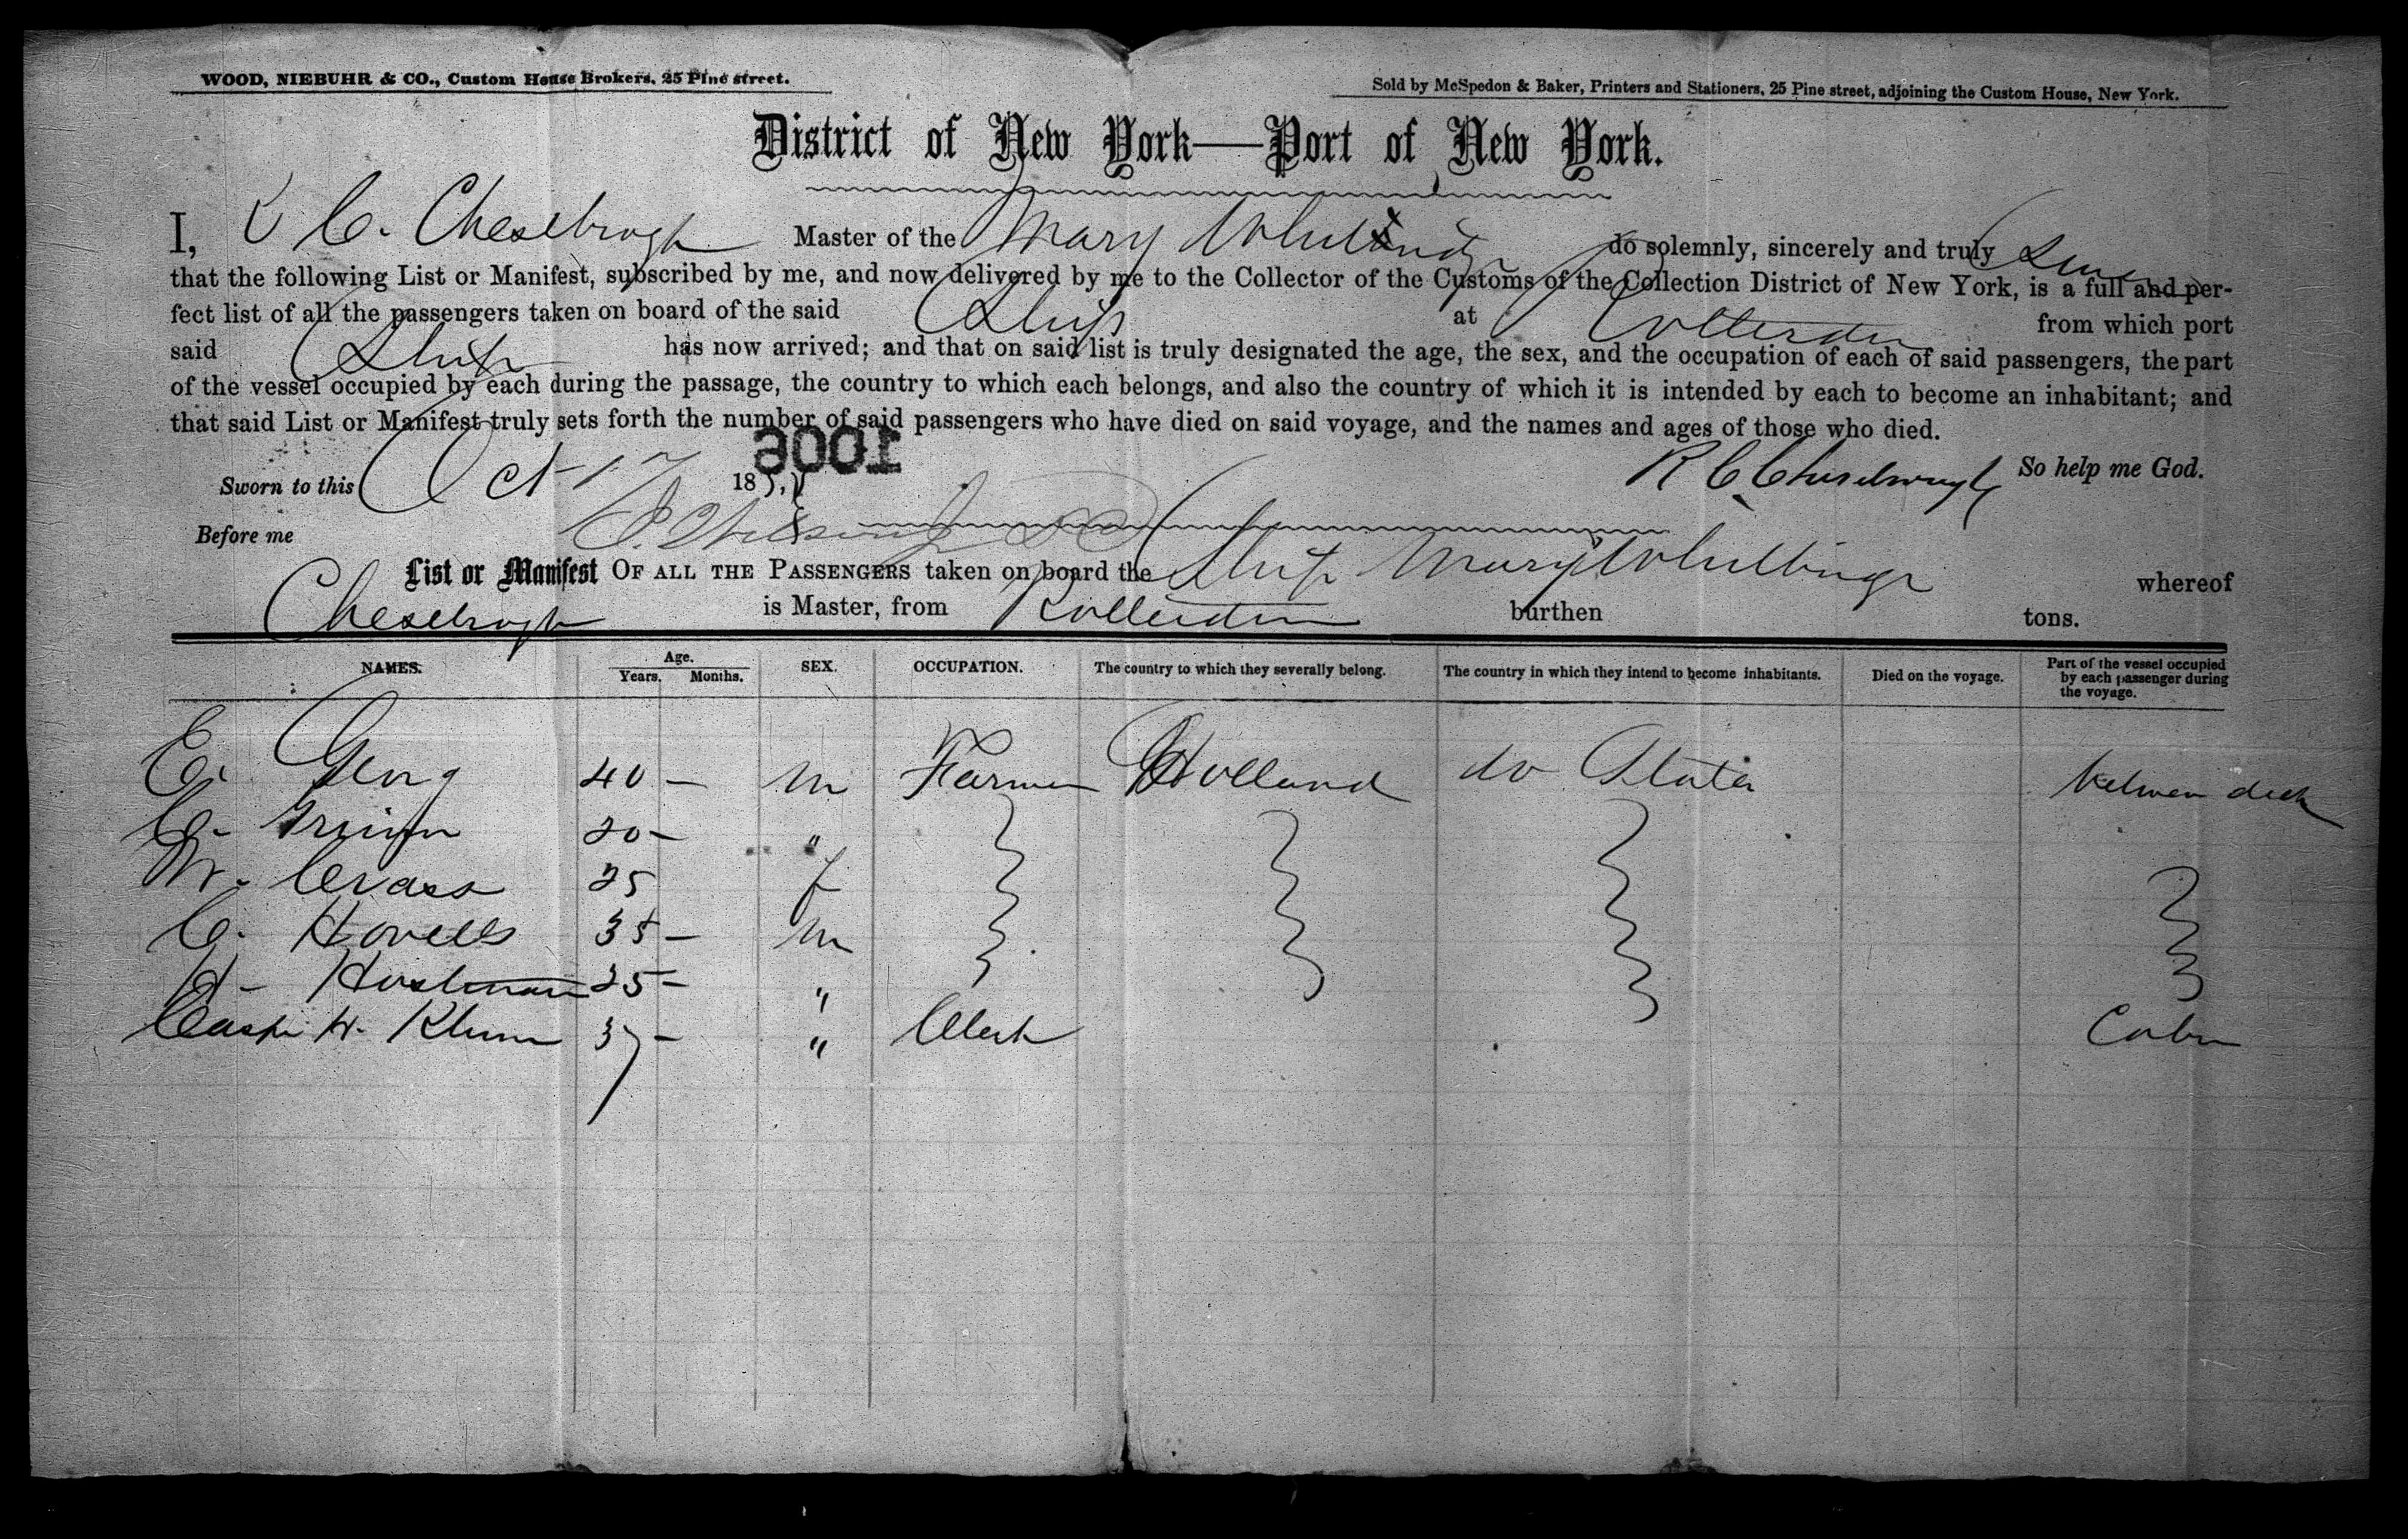 WOOD, NIEBUHR & CO., Custom House Brokers, 25 Pine street.
Sold by McSpedon & Baker, Printers and Stationers, 25 Pine street, adjoining the Custom House, New York.
District of New York—Port of New York.
I, C. Chesebrogh Master of the Mary do solemnly, sincerely and truly Swear
that the following List or Manifest, subscribed by me, and now delivered by me to the Collector of the Customs of the Collection District of New York, is a full and per-
fect list of all the passengers taken on board of the said Ship at Rotterdam from which port
said Ship has now arrived; and that on said list is truly designated the age, the sex, and the occupation of each of said passengers, the part
of the vessel occupied by each during the passage, the country to which each belongs, and also the country of which it is intended by each to become an inhabitant; and
that said List or Manifest truly sets forth the number of said passengers who have died on said voyage, and the names and ages of those who died.
1006
Sworn to this Oct 17 185 R C Chesebrough So help me God.
Before me
List or Manifest OF ALL THE PASSENGERS taken on board the Ship Mary whereof
Chesebrogh is Master, from Rotterdam burthen tons.
NAMES. Age. Years. Months. SEX. OCCUPATION. The country to which they severally belong. The country in which they intend to become inhabitants. Died on the voyage. Part of the vessel occupied by each passenger during the voyage.
E. Georg 40 — m Farmer Holland States between deck
C. 20 — "
W. Crass 25 f
C. Hovells 35 — m
H — Hostmann 25 — "
H. 37 — " Clerk Cabin